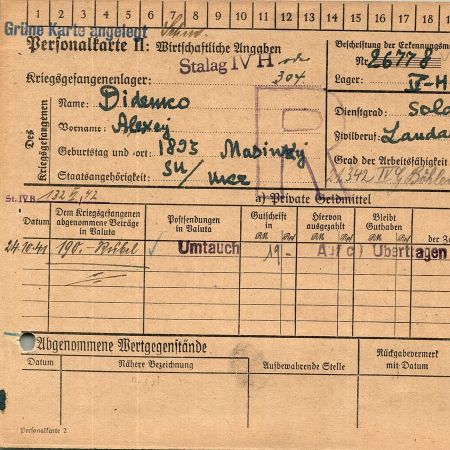 1 2 3 4 5 6 7 8 9 10 11 12 13 14 15 16 17 18
Grüne Karte angelegt
Personalkarte II: Wirtschaftliche Angaben
Beschriftung der Erkennungsm
Stalag IV H
304
Nr. 26778
Kriegsgefangenenlager:
Lager: IV-H
Des Kriegsgefangenen
Name: Didenko
Dienstgrad: Solo
Vorname: Alexej
Zivilberuf: Landa
Geburtstag und -ort: 1893 Masinskj
Grad der Arbeitsfähigkeit
Staatsangehörigkeit: SU/ Ukr
St. IV B
a) Private Geldmittel
Datum
Dem Kriegsgefangenen abgenommene Beträge in Valuta
Postsendungen in Valuta
Gutschrift in RM Rpf
Hiervon ausgezahlt RM Rpf
Bleibt Guthaben RM Rpf
der Za
24.10.41 190.- Rubel Umtausch 19 - Auf c) Übertragen
Abgenommene Wertgegenstände
Datum
Nähere Bezeichnung
Aufbewahrende Stelle
Rückgabevermerk mit Datum
Personalkarte 2